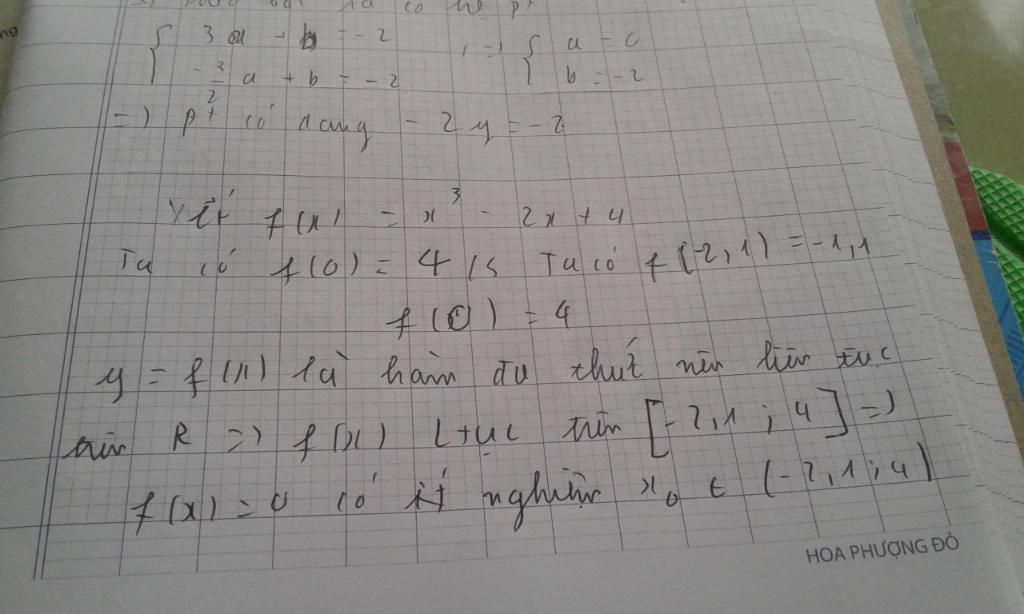 có hệ pt
{ 3a - b = -2 (=) { a = 0
-3/2 a + b = -2 b = -2
=) pt có dạng - 2y = -2
Xét f(x) = x³ - 2x + 4
Ta có f(0) = 4 Ta có f(-2,1) = -1,1
f(0) = 4
y = f(x) là hàm đa thức nên liên tục
trên R => f(x) L tục trên [-2,1 ; 4] =)
f(x) = 0 có ít nghiệm x₀ ∈ (-2,1 ; 4)
HOA PHƯỢNG ĐỎ